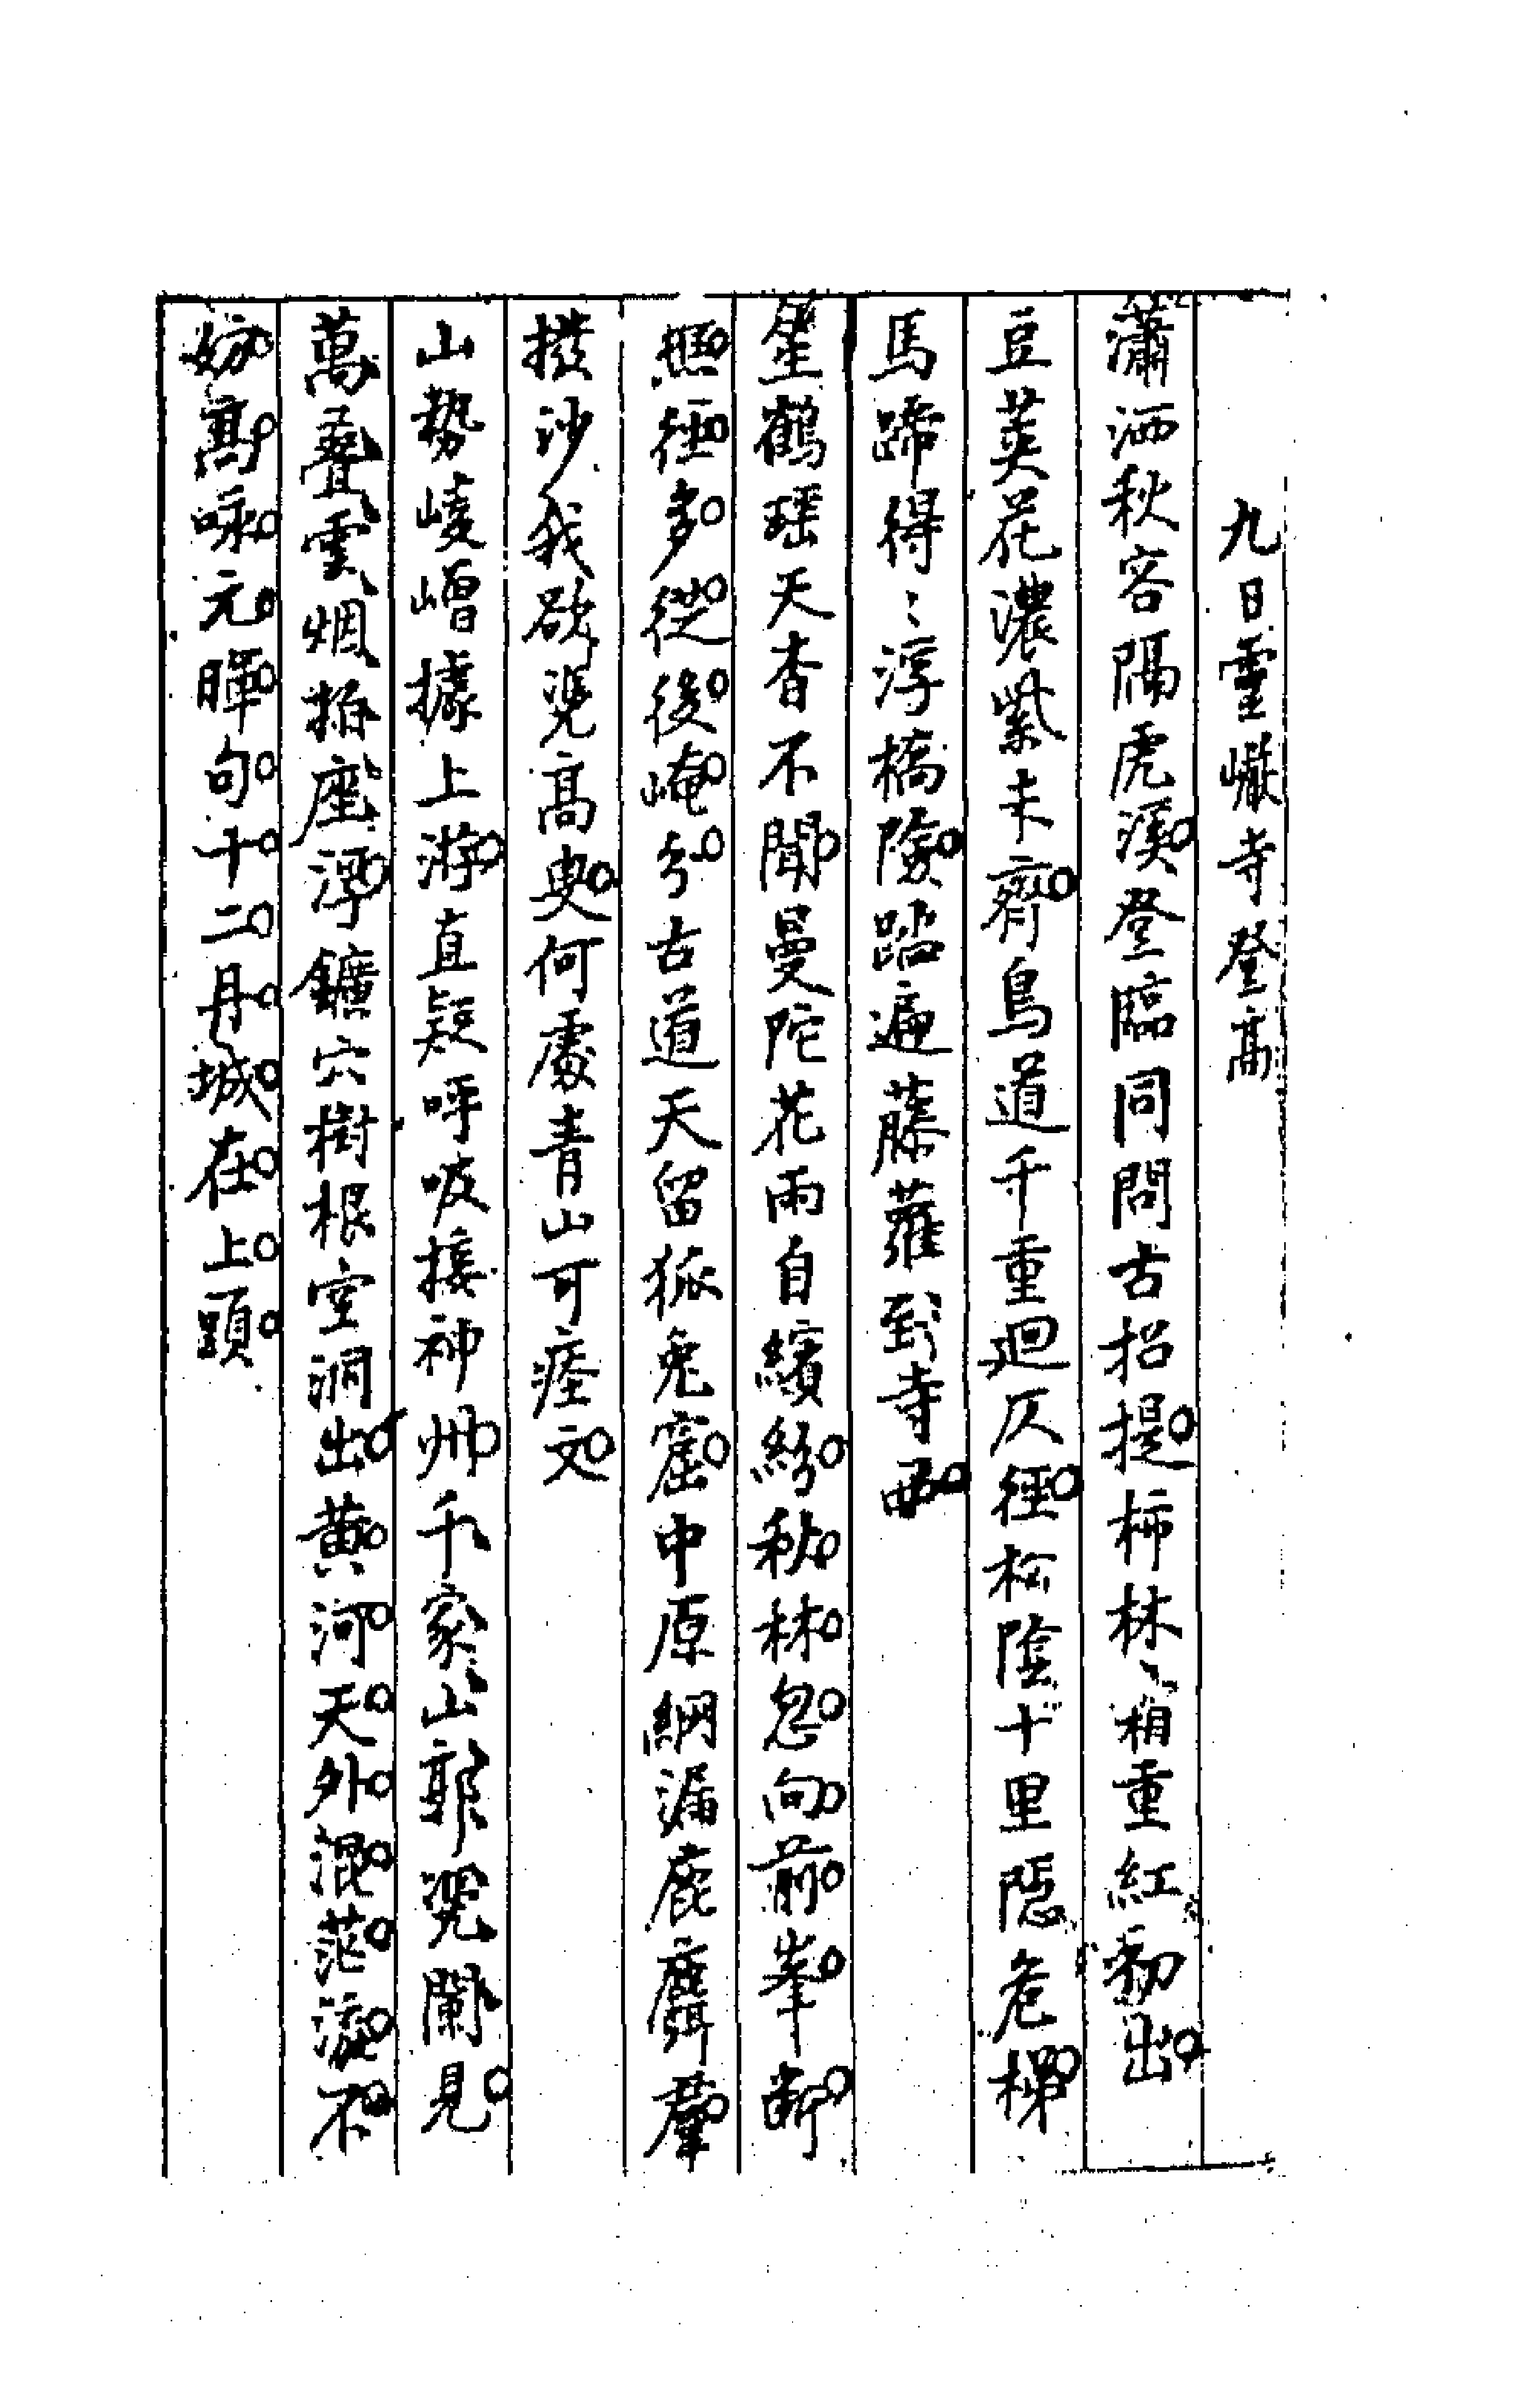 九日靈巗寺登高
瀟洒秋容隔虎溪登臨同問古招提柿林霜重紅初出
豆莢花濃紫未齊鳥道千重迴仄徑松陰十里隱危梯
馬蹄得〻浮橋險踏遍藤蘿到寺西
笙鶴瑤天杳不聞曼陀花雨自繽紛秋林忽向前峯斷
樵徑多從後崦分古道天留狐兔窟中原網漏鹿麏羣
撥沙我欲凭高叟何處青山可瘗文
山勢崚嶒據上游直疑呼吸接神州千家山郭凭闌見
萬疊雲烟拍座浮鑛穴樹根空洞出黃河天外混茫流不
妨高咏元暉句十二丹城在上頭